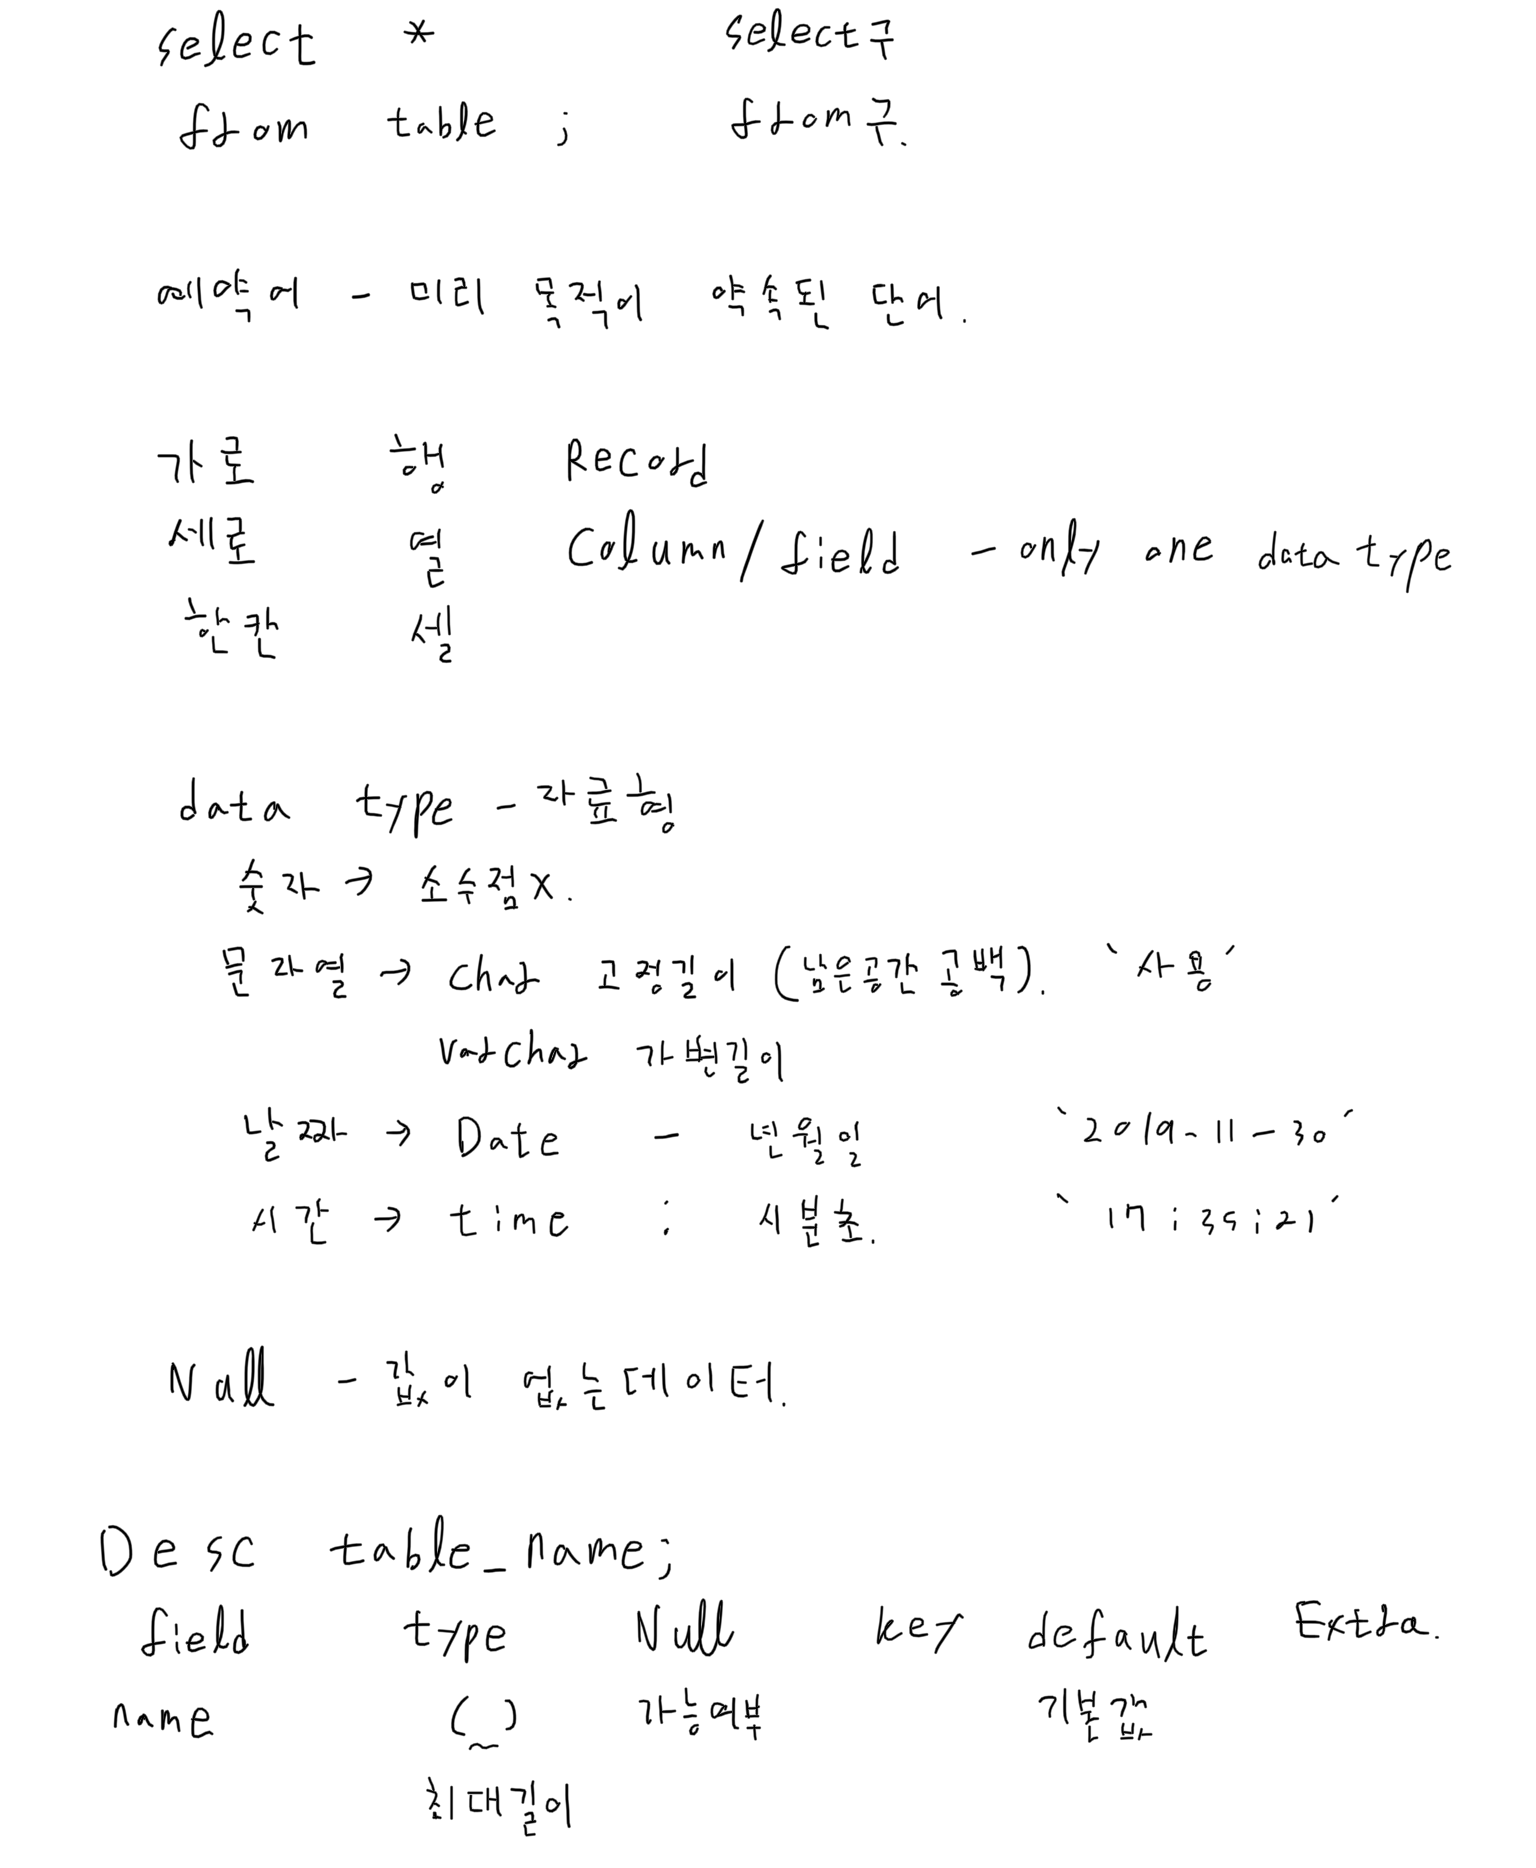 select * select구
from table ; from구.
예약어 - 미리 목적이 약속된 단어.
가로 행 Record
세로 열 Column/field - only one data type
한칸 셀
data type - 자료형
숫자 → 소수점X.
문자열 → Char 고정길이 (남은공간 공백). `사용´
Varchar 가변길이
날짜 → Date - 년월일 `2019-11-30´
시간 → time : 시분초. `17:35:21´
Null - 값이 없는데이터.
Desc table_name;
field type Null key default Extra.
name (_) 가능여부 기본값
최대길이